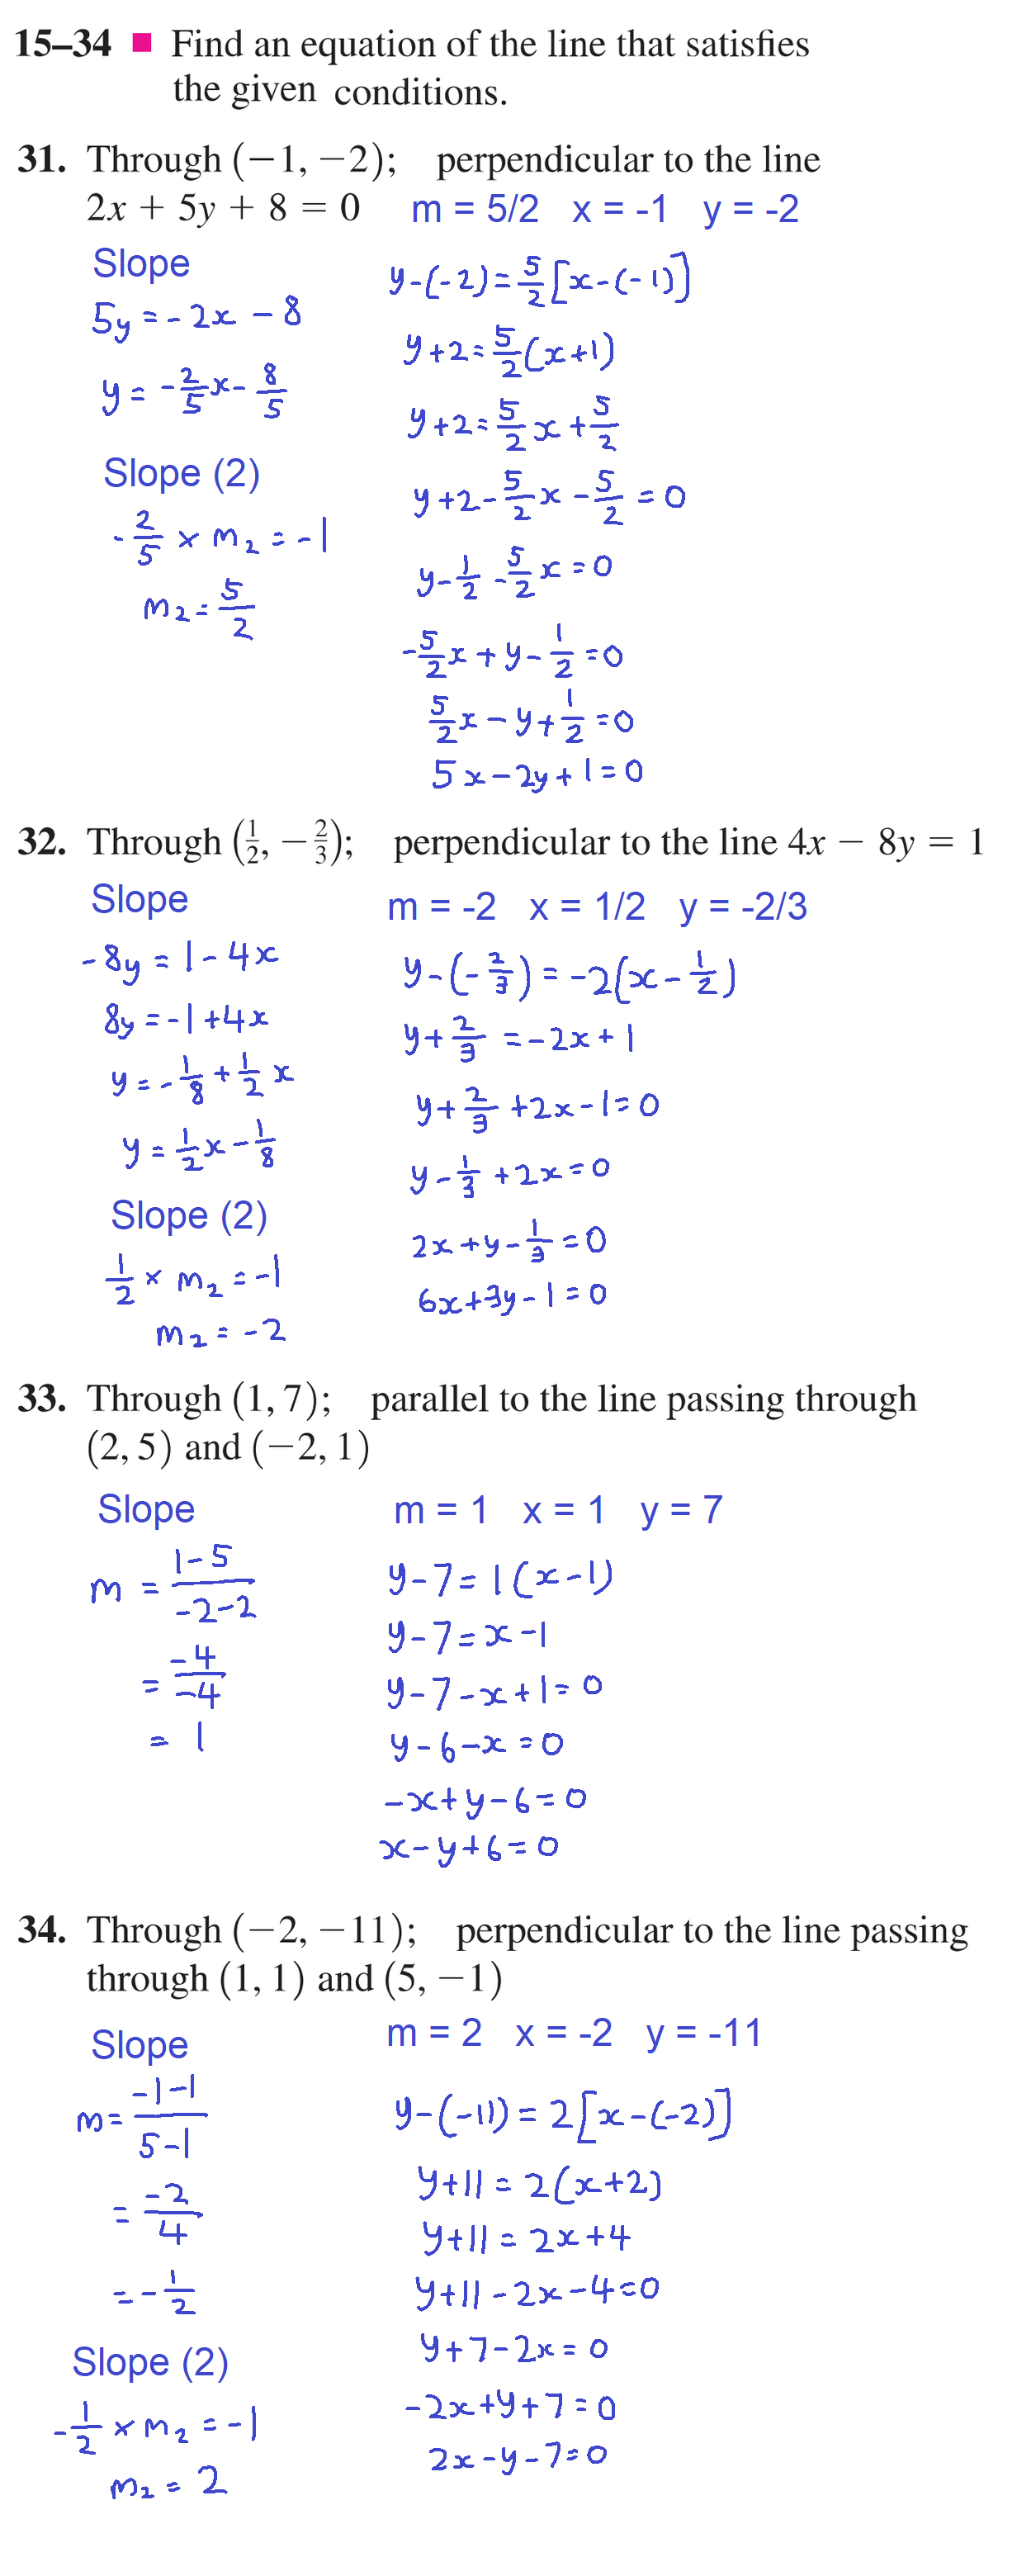 15–34 ■ Find an equation of the line that satisfies
the given conditions.
31. Through (−1, −2); perpendicular to the line
2x + 5y + 8 = 0 m = 5/2 x = -1 y = -2
Slope
5y = -2x - 8
y = -2/5 x - 8/5
Slope (2)
-2/5 × m₂ = -1
m₂ = 5/2
y-(-2) = 5/2 [x-(-1)]
y+2 = 5/2 (x+1)
y+2 = 5/2 x + 5/2
y+2 - 5/2 x - 5/2 = 0
y - 1/2 - 5/2 x = 0
-5/2 x + y - 1/2 = 0
5/2 x - y + 1/2 = 0
5x - 2y + 1 = 0
32. Through (1/2, −2/3); perpendicular to the line 4x − 8y = 1
Slope
-8y = 1 - 4x
8y = -1 + 4x
y = -1/8 + 1/2 x
y = 1/2 x - 1/8
Slope (2)
1/2 × m₂ = -1
m₂ = -2
m = -2 x = 1/2 y = -2/3
y-(-2/3) = -2(x - 1/2)
y + 2/3 = -2x + 1
y + 2/3 + 2x - 1 = 0
y - 1/3 + 2x = 0
2x + y - 1/3 = 0
6x + 3y - 1 = 0
33. Through (1, 7); parallel to the line passing through
(2, 5) and (−2, 1)
Slope
m = 1-5/-2-2
= -4/-4
= 1
m = 1 x = 1 y = 7
y-7 = 1(x-1)
y-7 = x-1
y-7-x+1 = 0
y-6-x = 0
-x+y-6 = 0
x-y+6 = 0
34. Through (−2, −11); perpendicular to the line passing
through (1, 1) and (5, −1)
Slope
m = -1-1/5-1
= -2/4
= -1/2
Slope (2)
-1/2 × m₂ = -1
m₂ = 2
m = 2 x = -2 y = -11
y-(-11) = 2[x-(-2)]
y+11 = 2(x+2)
y+11 = 2x+4
y+11-2x-4=0
y+7-2x = 0
-2x+y+7 = 0
2x-y-7=0